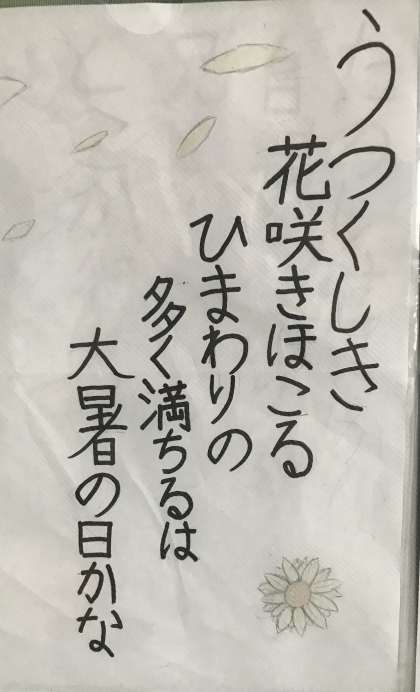 うつくしき
花咲きほこる
ひまわりの
多く満ちるは
大暑の日かな